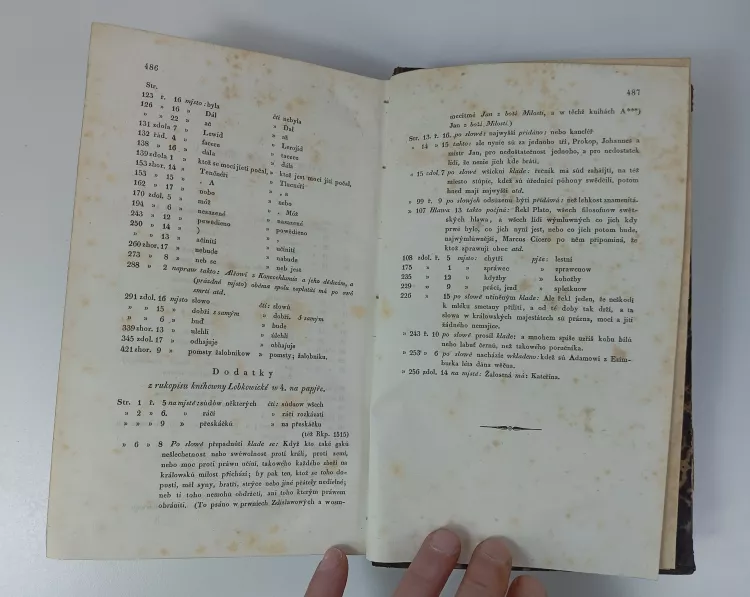 486
Str.
123 ř. 16 místo: byla čti nebyla
126 » 16 » Dál » Dal
» » 22 » sě » zě
131 zdola 7 » Lewid » Lerojáš
132 řád. 4 » facere » tacere
138 » 16 » dála » dala
139 zdola 1 » ktož se moci jistí počal, » ktož jest moci jistí počal,
153 zhor. 14 » »
153 » 15 » . A » » »
162 » 17 » nebo » nebo
170 zdola 5 » móž » . Móž
194 » 6 » nesazené » nesazené
243 » 12 » powědieno » powědieno
250 » 14 » ) » »
» » 13 » učiniti » učiniti
260 zhor. 17 » nebude » nebude
273 » 8 » neb se » neb jest
288 » 2 naprav takto: Alšowi z Kancehlamie a jeho dědicům, a
(prázdné místo) oběma spolu zaplatiti má po své
smrti atd.
291 zdol. 16 místo slowo čti: slowů
» » 15 » dobří z samým » dobří. S samým
» » 6 » buď » bude
339 zhor. 13 » ulehli » úlehli
345 zdol. 17 » odhajuje » obhajuje
421 zhor. 9 » pomsty žalobníkom » pomsty; žalobníku.
Dodatky
z rukopisu knihowny Lobkowické w 4. na papíře.
Str. 1 ř. 5 na místě: súdów některých čti: súduow wšech
» 2 » 6. » ráčí » ráčí rozkázati
» » » 9 » přeskáčků » na přeskáčku
(též Rkp. 1515)
» 6 » 8 Po slowě přepadnúti klade se: Když kto také gakú
nešlechetnost nebo swéwolnost proti králi, proti zemi,
nebo moc proti práwu učiní, takowého každého zboží na
králowskú milost přichází; by pak ten, ktož se toho do-
pustí, měl syny, bratří, strýce nebo jiné přátely nedielné;
neb ti toho nemohú obdržeti, ani toho kterým práwem
obrániti. (To psáno w prwních Zdislawowých a wsem-
487
mecítmá Jan z boží Milosti, a w těchž knihách A***)
Jan z boží Milosti.)
Str. 13. ř. 16. po slowě: najwyšší přidáno: nebo kanclěř
» 14 » 15 takto: ale nynie sú za jednoho tři, Prokop, Johannes a
mistr Jan, pro nedostatečnost jednoho, a pro nedostatek
lidí, že nenie jich kde bráti.
» 15 zdol. 7 po slowě wšickni klade: czerník má súd zahájiti, na též
miesto stúpie, kdež sú úředníci póhony swědčili, potom
hned mají najwyšší atd.
» 99 ř. 9 po slowjch odsúzenu býti přidáwá: než lehkost znamenitá.
» 107 Hlawa 13 takto počíná: Řekl Plato, wšech filosofuow swět-
ských hlawa, a wšech lidí wýmluwných co jich kdy
prwé bylo, co jich nyní jest, nebo co jich potom bude,
najwýmluwnější, Marcus Cicero po něm připomíná, že
ktož sprawují obec atd.
108 zdol. ř. 5 místo: chytří pjše: lestní
175 » 1 » spráwec » sprawcuow
235 » 13 » kdyžby » kohožby
239 » 9 » práci, jezd » spletkuow
226 » 15 po slowě utištěným klade: Ale řekl jeden, že neškodí
k mléku smetany přilíti, a od té doby tak drží, a ta
slowa w králowských majestátech sú prázna, moci a jistí
žádného nemajíce.
» 243 ř. 10 po slowě prosil klade: a mnohem spíše uzříš kobu bielu
nebo labeť černú, než takowého poručníka.
» 253 » 6 po slowě nacházie wkládeno: když sú Adamowi z Ezim-
burka léta dána wěčná.
» 256 zdol. 14 na místě: Žalostná má: Kateřina.